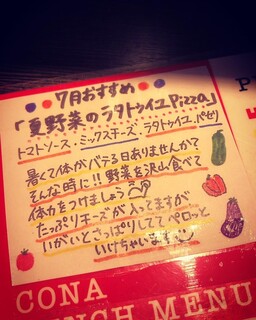 7月おすすめ
「夏野菜のラタトゥイユPizza」
トマトソース・ミックスチーズ、ラタトゥイユ、パセリ
暑くて体がバテる日ありませんか？
そんな時に!! 野菜を沢山食べて
体力をつけましょう
たっぷりチーズが入ってますが
いがいとさっぱりしてて ペロッと
いけちゃいます
CONA
NCH MENU